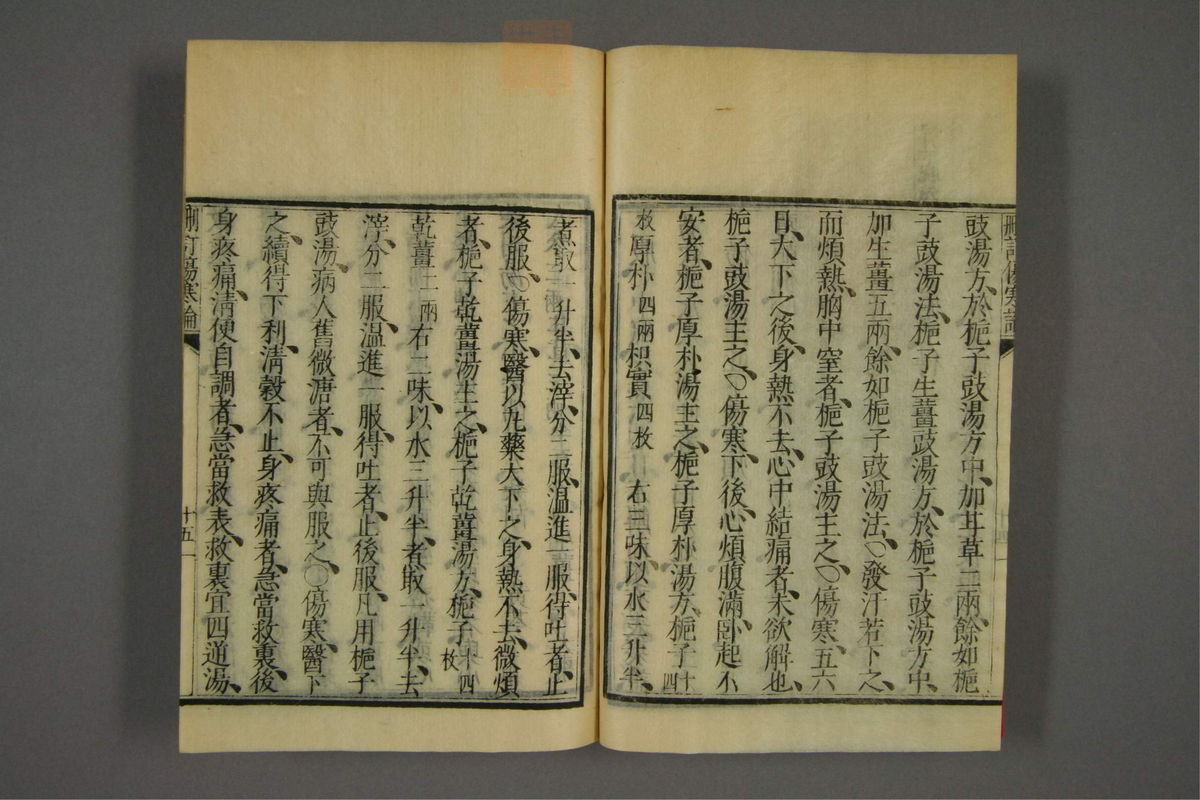 豉湯方、於梔子豉湯方中、加甘草二兩、餘如梔
子豉湯法、梔子生薑豉湯方、於梔子豉湯方中、
加生薑五兩、餘如梔子豉湯法、〇發汗若下之、
而煩熱、胸中窒者、梔子豉湯主之、〇傷寒、五六
日、大下之後、身熱不去、心中結痛者、未欲解也、
梔子豉湯主之、〇傷寒、下後、心煩腹滿、卧起不
安者、梔子厚朴湯主之、梔子厚朴湯方、梔子十四
枚厚朴四兩枳實四枚 右三味、以水三升半、
煮取一升半、去滓、分二服、溫進一服、得吐者、止
後服、〇傷寒、醫以丸藥大下之、身熱不去、微煩
者、梔子乾薑湯主之、梔子乾薑湯方、梔子十四枚
乾薑二兩右二味、以水三升半、煮取一升半、去
滓、分二服、溫進一服、得吐者、止後服、凡用梔子
豉湯、病人舊微溏者、不可與服之、〇傷寒、醫下
之、續得下利、清穀不止、身疼痛者、急當救裏、後
身疼痛、清便自調者、急當救表、救裏宜四逆湯、
刪訂傷寒論
十五